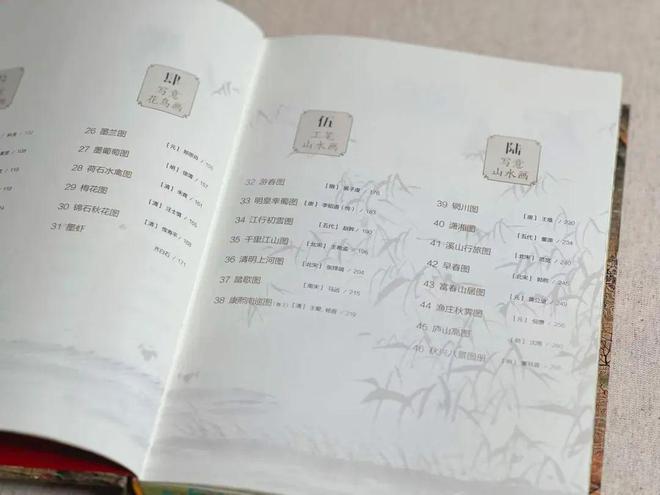 肆
写意
花鸟画
26 墨兰图 【元】郑思肖 / 155
27 墨葡萄图 【明】徐渭 / 157
28 荷石水禽图 【清】朱耷 / 161
29 梅花图 【清】汪士慎 / 165
30 锦石秋花图 【清】恽寿平 / 168
31 墨虾 齐白石 / 171
伍
工笔
山水画
32 游春图 【隋】展子虔 176
33 明皇幸蜀图 【唐】李昭道（传） / 183
34 江行初雪图 【五代】赵幹 / 190
35 千里江山图 【北宋】王希孟 / 196
36 清明上河图 【北宋】张择端 / 204
37 踏歌图 【南宋】马远 / 215
38 康熙南巡图（卷三）【清】王翚、杨晋 / 219
陆
写意
山水画
39 辋川图 【唐】王维 / 230
40 潇湘图 【五代】董源 / 234
41 溪山行旅图 【北宋】范宽 / 240
42 早春图 【北宋】郭熙 / 245
43 富春山居图 【元】黄公望 / 249
44 渔庄秋霁图 【元】倪瓒 / 256
45 庐山高图 【明】沈周 / 260
46 秋兴八景图册 【明】董其昌 / 266